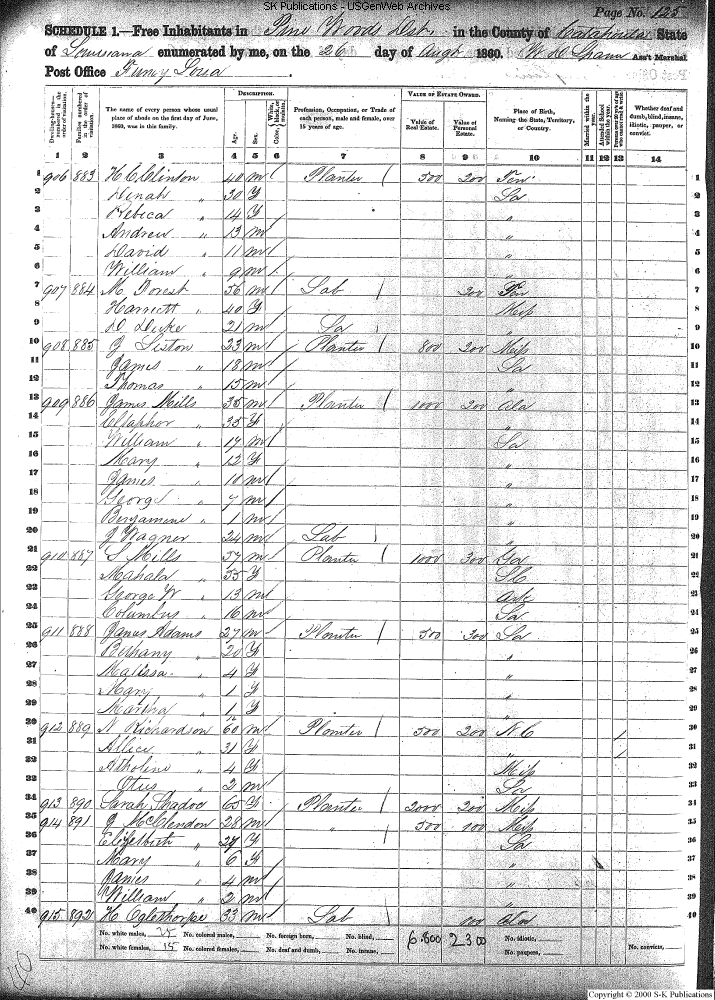 SK Publications - USGenWeb Archives
Page No. 125
SCHEDULE 1.—Free Inhabitants in Pine Woods Dst. in the County of Catahoula State
of Louisiana enumerated by me, on the 26 day of Augt 1860. W D Spann Ass't Marshal
Post Office Funny Louisa
Dwelling-houses—numbered in the order of visitation.
Families numbered in the order of visitation.
The name of every person whose usual place of abode on the first day of June, 1860, was in this family.
DESCRIPTION.
Age.
Sex.
Color, White, black, or mulatto.
Profession, Occupation, or Trade of each person, male and female, over 15 years of age.
VALUE OF ESTATE OWNED.
Value of Real Estate.
Value of Personal Estate.
Place of Birth, Naming the State, Territory, or Country.
Married within the year.
Attended School within the year.
Whether deaf and dumb, blind, insane, idiotic, pauper, or convict.
1 2 3 4 5 6 7 8 9 10 11 12 13 14
1 906 883 H C Clinton 40 m Planter 500 200 Ten 1
2 Dinah " 30 f La 2
3 Rebica " 14 f " 3
4 Andrew " 13 m " 4
5 David " 11 m " 5
6 William " 9 m " 6
7 907 884 M Forest 56 m Lab 200 Ten 7
8 Harriett " 40 f Miss 8
9 D Duke 21 m La " 9
10 908 885 J Siston 23 m Planter 800 200 Miss 10
11 James " 18 m La 11
12 Thomas " 15 m " 12
13 909 886 James Mills 35 m Planter 1000 200 Ala 13
14 " 35 f " 14
15 William " 17 m La 15
16 Mary " 12 f " 16
17 James " 10 m " 17
18 George " 7 m " 18
19 Benjamine " 1 m " 19
20 J Wagner 24 m Lab " 20
21 910 887 S Mills 57 m Planter 1000 300 Ga 21
22 Mahala " 55 f SC 22
23 George W " 13 m Ark 23
24 Columbus " 16 m La 24
25 911 888 James Adams 27 m Planter 500 300 La 25
26 Bethany " 20 f " 26
27 Malissa " 4 f " 27
28 Mary " 1 f " 28
29 Martha " 1 f " 29
30 912 889 N Richardson 60 m Planter 500 200 N C / 30
31 Allice " 31 f " / 31
32 " 4 f Miss 32
33 Otus " 2 m La 33
34 913 890 Sarah Shadoc 65 f Planter 2000 200 Miss 34
35 914 891 J McClendon 28 m " 500 100 Miss 35
36 Elizebeth " 27 f La 36
37 Mary " 6 f " 37
38 James " 4 m " 38
39 William " 2 m " 39
40 915 892 H Oglethorpe 33 m Lab 100 Ala 40
No. white males, 25 No. colored males, No. foreign born, No. blind, 6.800 2300 No. idiotic,
No. white females, 15 No. colored females, No. deaf and dumb, No. insane, No. paupers, No. convicts,
40
Copyright © 2000 S-K Publications